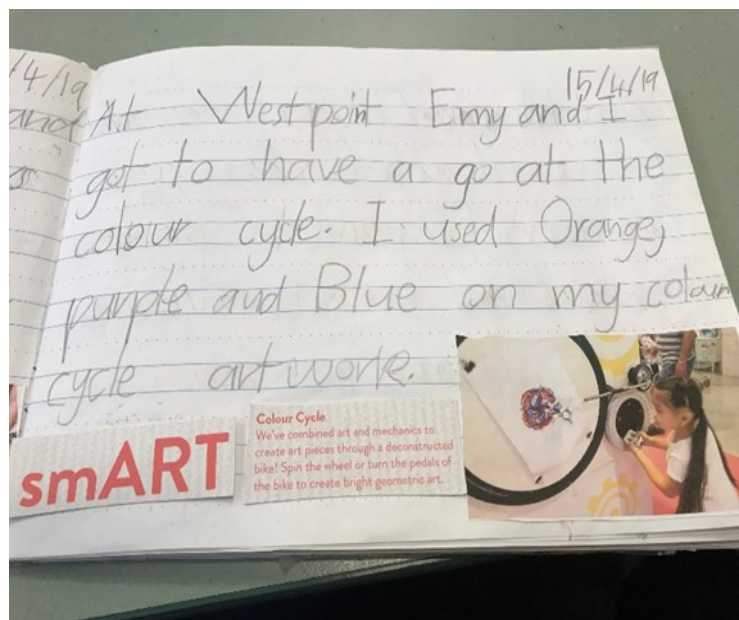 /4/19
and
15/4/19
At West point Emy and I
got to have a go at the
colour cycle. I used Orange,
purple and Blue on my colour
cycle artwork.
smART
Colour Cycle
We've combined art and mechanics to
create art pieces through a deconstructed
bike! Spin the wheel or turn the pedals of
the bike to create bright geometric art.